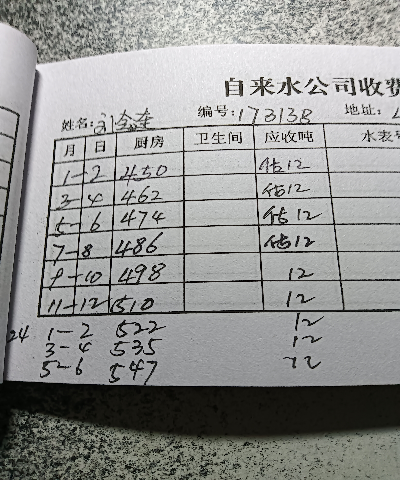 自来水公司收费
姓名: 编号:173138 地址:
月 日 厨房 卫生间 应收吨 水表
1-2 450 估12
3-4 462 估12
5-6 474 估12
7-8 486 估12
9-10 498 12
11-12 510 12
24 1-2 522 12
3-4 535 12
5-6 547 12